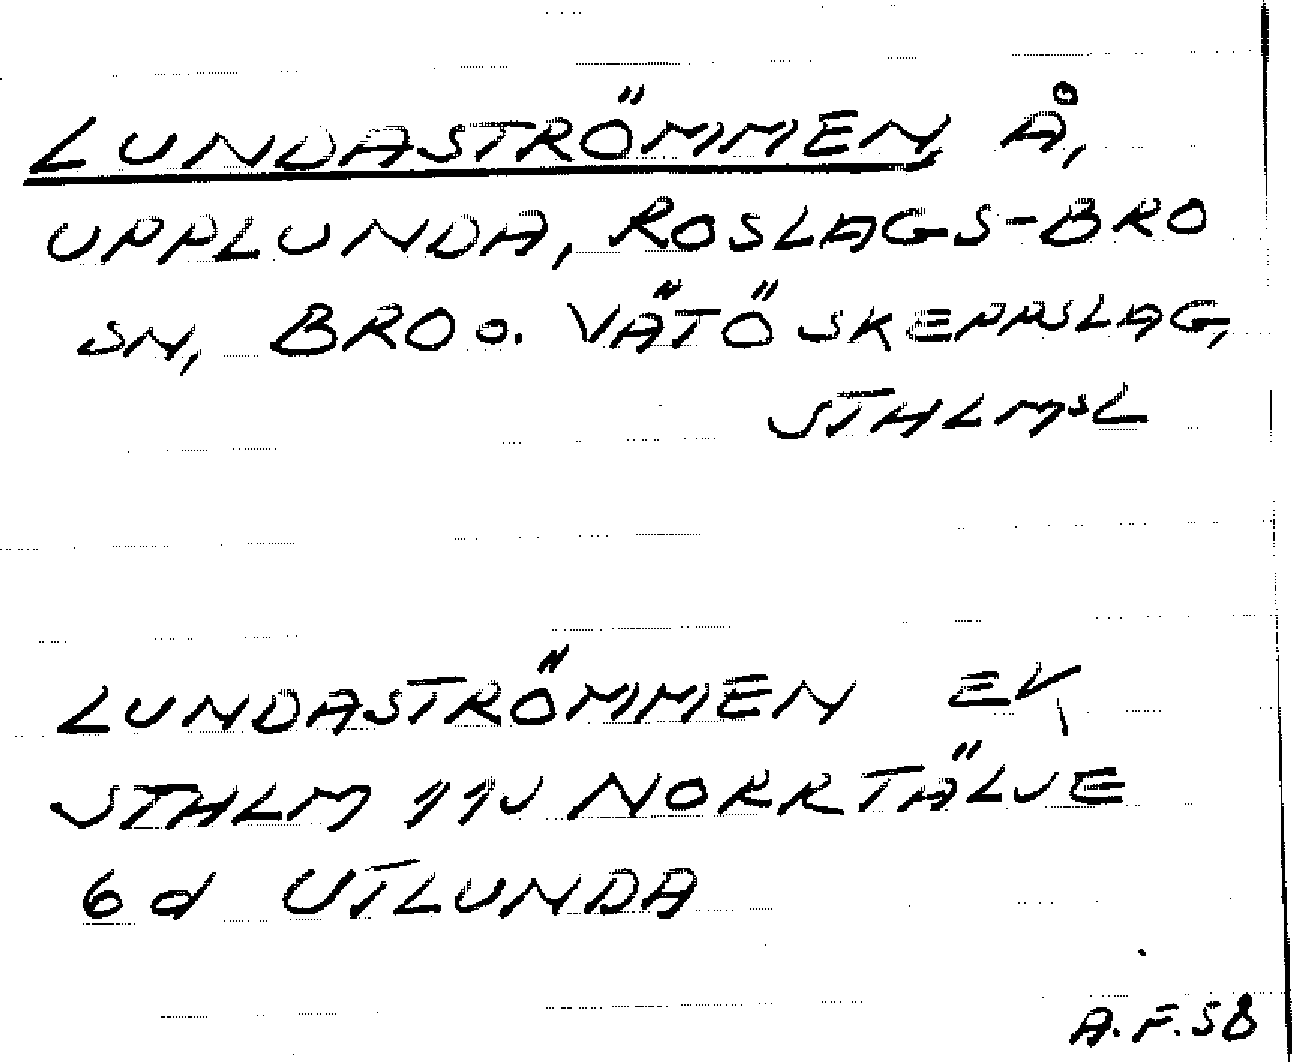 LUNDASTRÖMMEN, Å,
UPPLUNDA, ROSLAGS-BRO
SN, BRO o. VÄTÖ SKEPPSLAG,
STHLMSL
LUNDASTRÖMMEN EK
STHLM 11J NORRTÄLJE
6d UTLUNDA
A.F.58